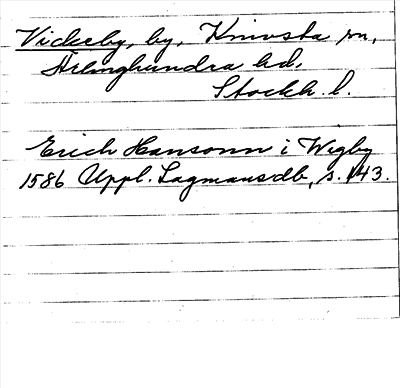 Vickeby, by, Knivsta sn,
Ärlinghundra hd,
Stockh. l.
Erich Hansonn i Wigby
1586 Uppl. Lagmansdb, s. 143.